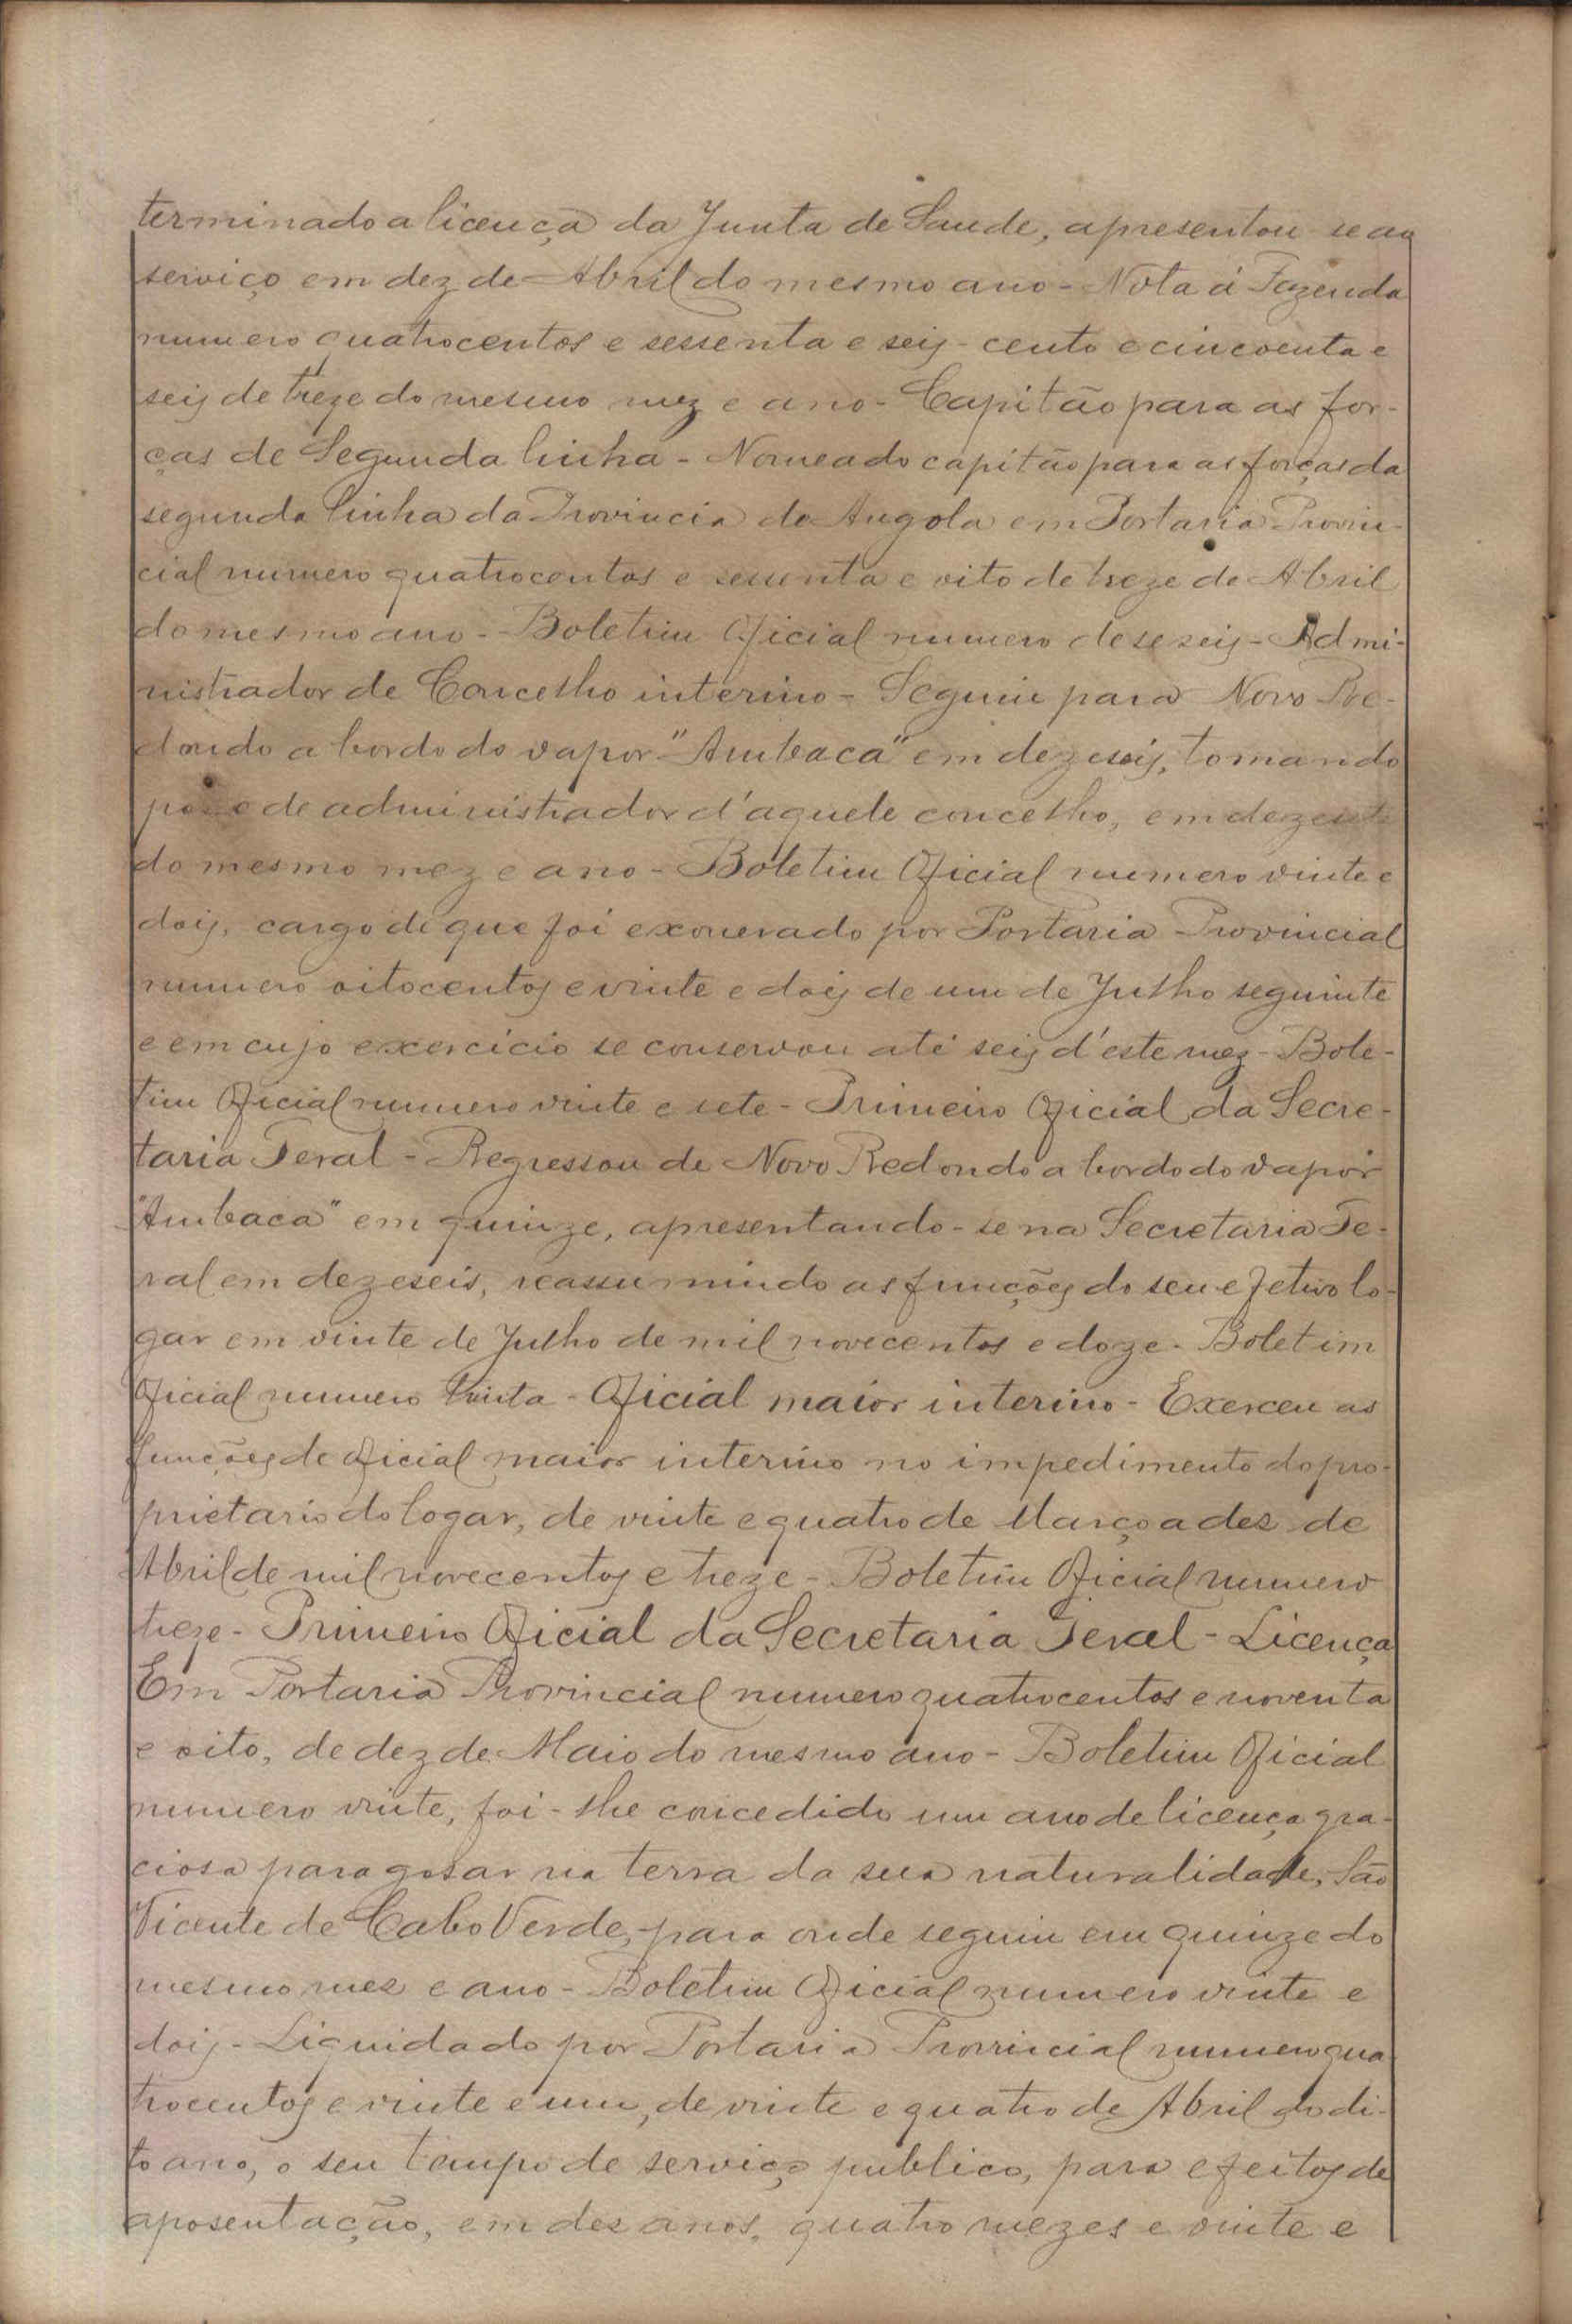 terminado a licença da Junta de Saude, apresentou-se ao
serviço em dez de Abril do mesmo ano - Nota á Fazenda
numero quatrocentos e sessenta e seis - cento e cincoenta e
seis de treze do mesmo mez e ano - Capitão para as for-
ças de Segunda linha - Nomeado capitão para as forças da
segunda linha da Provincia de Angola em Portaria Provin-
cial numero quatrocentos e sessenta e oito de treze de Abril
do mesmo ano - Boletim Oficial numero deseseis - Admi-
nistrador de Concelho interino - Seguiu para Novo Re-
dondo a bordo do vapor "Ambaca" em dezeseis, tomando
posse de administrador d'aquele concelho, em dezesete
do mesmo mez e ano - Boletim Oficial numero vinte e
dois, cargo de que foi exonerado por Portaria Provincial
numero oitocentos e vinte e dois de um de Julho seguinte
e em cujo exercicio se conservou até seis d'este mez - Bole-
tim Oficial numero vinte e sete - Primeiro Oficial da Secre-
taria Geral - Regressou de Novo Redondo a bordo do vapor
"Ambaca" em quinze, apresentando-se na Secretaria Ge-
ral em dezeseis, reassumindo as funções do seu efetivo lo-
gar em vinte de Julho de mil novecentos e doze - Boletim
Oficial numero trinta - Oficial maior interino - Exerceu as
funções de Oficial maior interino no impedimento do pro-
prietario do logar, de vinte e quatro de Março a dez de
Abril de mil novecentos e treze - Boletim Oficial numero
treze - Primeiro Oficial da Secretaria Geral - Licença
Em Portaria Provincial numero quatrocentos e noventa
e oito, de dez de Maio do mesmo ano - Boletim Oficial
numero vinte, foi-lhe concedido um ano de licença gra-
ciosa para gosar na terra da sua naturalidade, São
Vicente de Cabo Verde, para onde seguiu em quinze do
mesmo mez e ano - Boletim Oficial numero vinte e
dois - Liquidado por Portaria Provincial numero qua
trocentos e vinte e um, de vinte e quatro de Abril do di-
to ano, o seu tempo de serviço publico, para efeitos de
aposentação, em dez anos, quatro mezes e vinte e